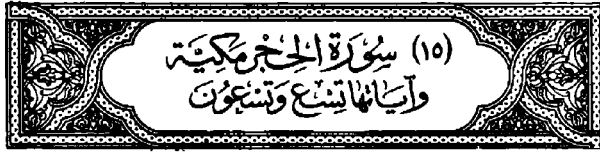 (١٥) سُورَة الحِجْر مَكيَّة
وآيَاتها تِسْع وَتسْعُونَ